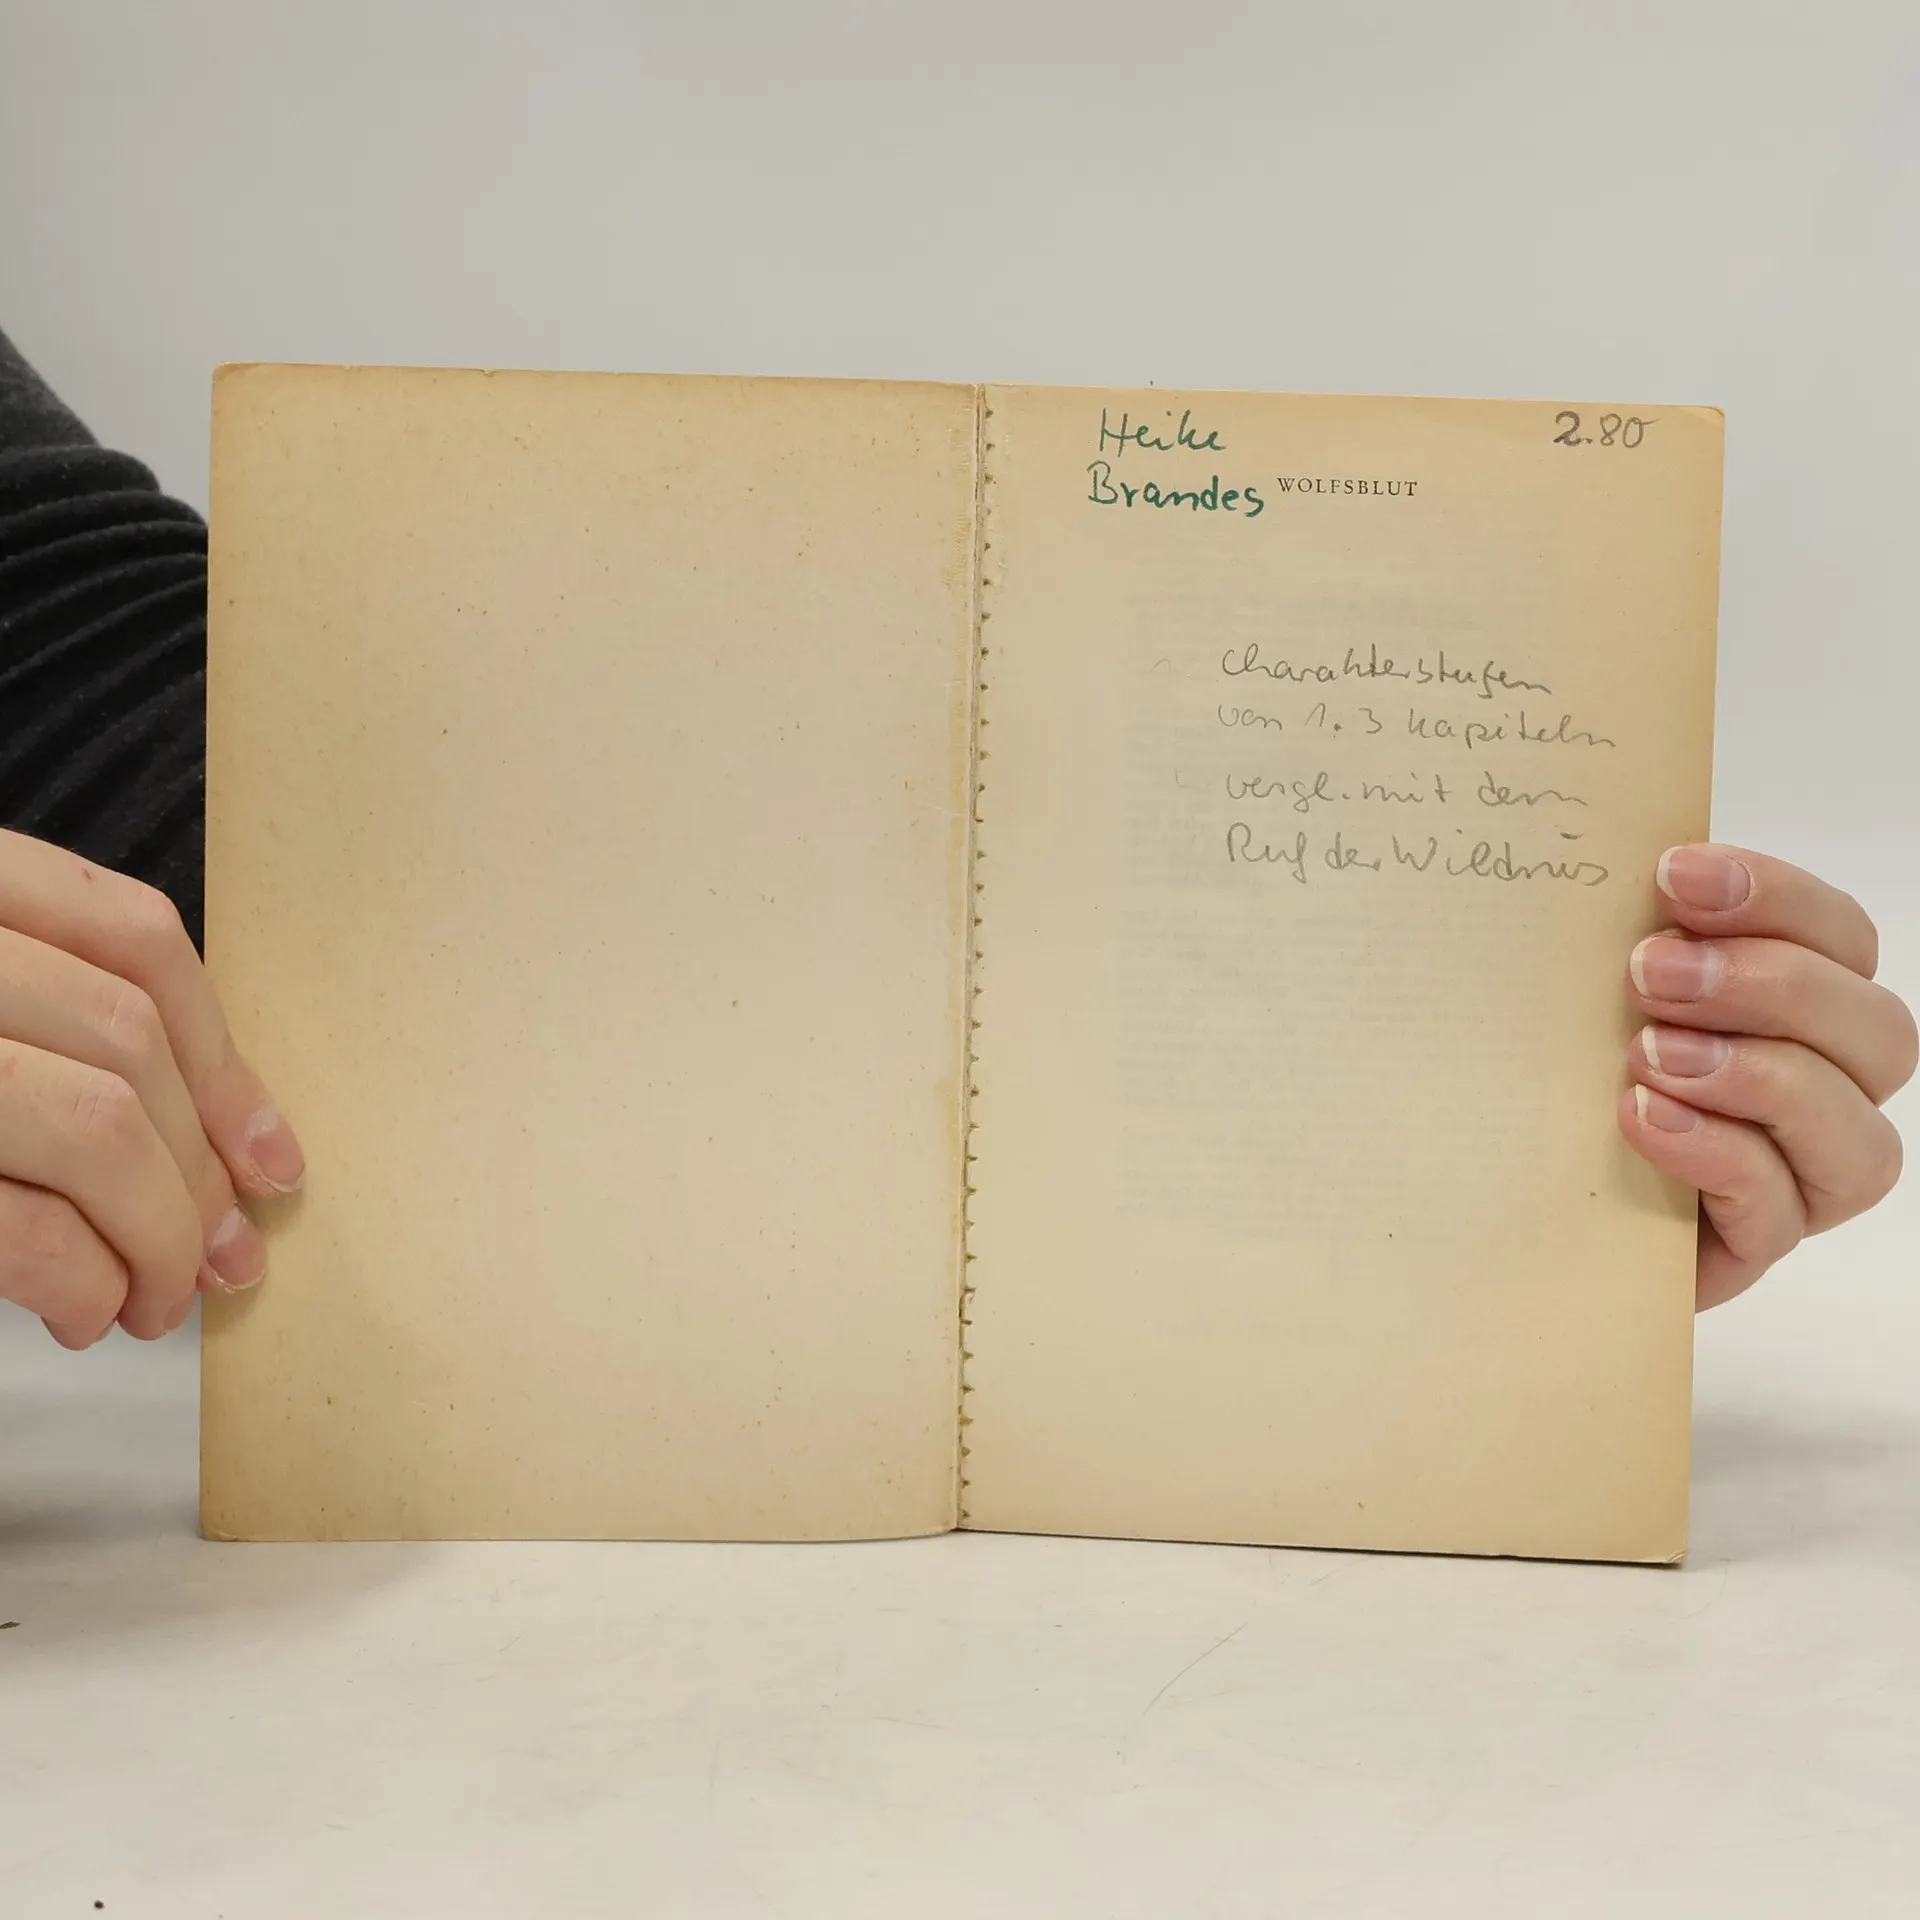 Heike
2.80
Brandes
WOLFSBLUT
Charakterstufen
von 1. 3 Kapiteln
vergl. mit dem
Ruf der Wildnis